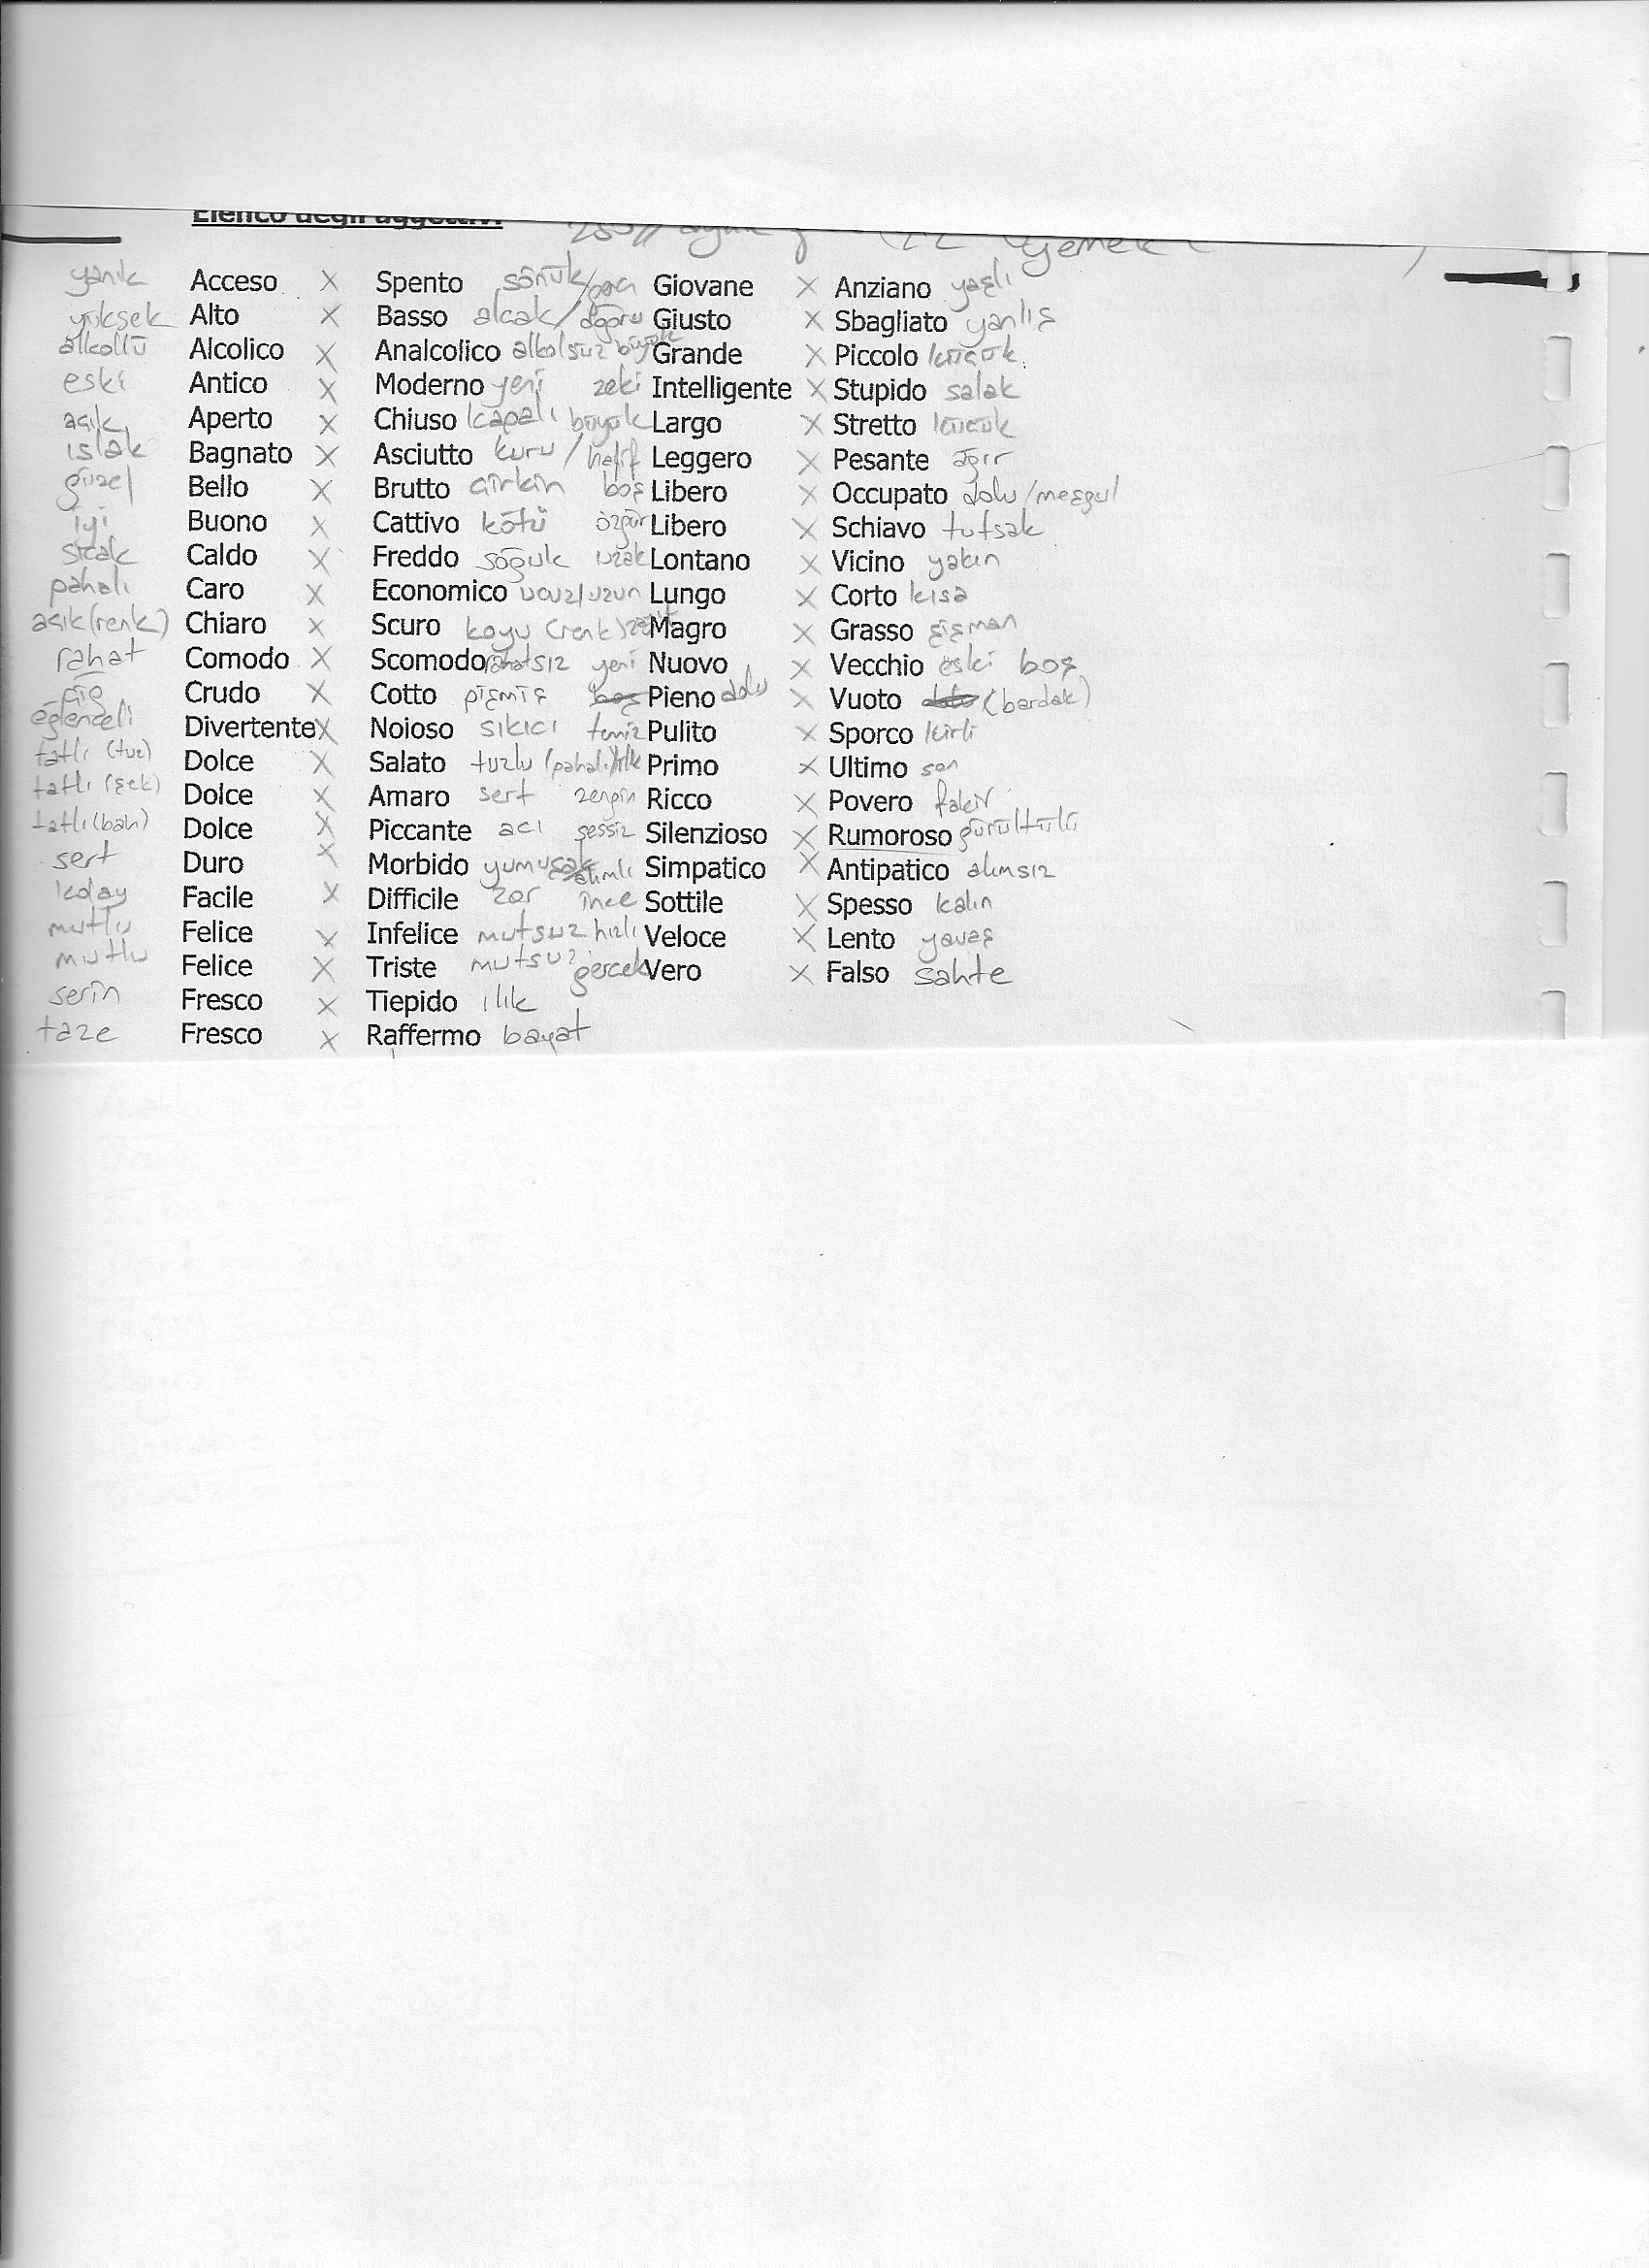 Elenco degli aggettivi
yemek
yanık Acceso X Spento sönük/genç Giovane X Anziano yaşlı
yüksek Alto X Basso alcak/doğru Giusto X Sbagliato yanlış
alkollü Alcolico X Analcolico alkolsüz büyük Grande X Piccolo küçük
eski Antico X Moderno yeni zeki Intelligente X Stupido salak
açık Aperto X Chiuso kapalı büyük Largo X Stretto küçük
ıslak Bagnato X Asciutto kuru/hafif Leggero X Pesante ağır
güzel Bello X Brutto çirkin boş Libero X Occupato dolu/meşgul
iyi Buono X Cattivo kötü özgür Libero X Schiavo tutsak
sıcak Caldo X Freddo soğuk uzak Lontano X Vicino yakın
pahalı Caro X Economico ucuz/uzun Lungo X Corto kısa
açık (renk) Chiaro X Scuro koyu (renk) zayıf Magro X Grasso şişman
rahat Comodo X Scomodo rahatsız yeni Nuovo X Vecchio eski boş
çiğ Crudo X Cotto pişmiş boş Pieno dolu X Vuoto dolu (bardak)
eğlenceli Divertente X Noioso sıkıcı temiz Pulito X Sporco kirli
tatlı (tuz) Dolce X Salato tuzlu (pahalı)/ilk Primo X Ultimo son
tatlı (şek) Dolce X Amaro sert zengin Ricco X Povero fakir
tatlı (bah) Dolce X Piccante acı sessiz Silenzioso X Rumoroso gürültülü
sert Duro X Morbido yumuşak alımlı Simpatico X Antipatico alımsız
kolay Facile X Difficile zor ince Sottile X Spesso kalın
mutlu Felice X Infelice mutsuz hızlı Veloce X Lento yavaş
mutlu Felice X Triste mutsuz gerçek Vero X Falso sahte
serin Fresco X Tiepido ılık
taze Fresco X Raffermo bayat